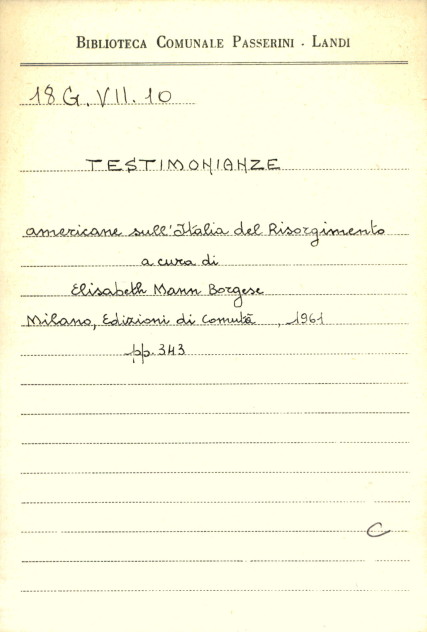 BIBLIOTECA COMUNALE PASSERINI - LANDI
18 G. VII. 10
TESTIMONIANZE
americane sull'Italia del Risorgimento
a cura di
Elisabeth Mann Borgese
Milano, Edizioni di Comutà, 1961
pp. 343
C